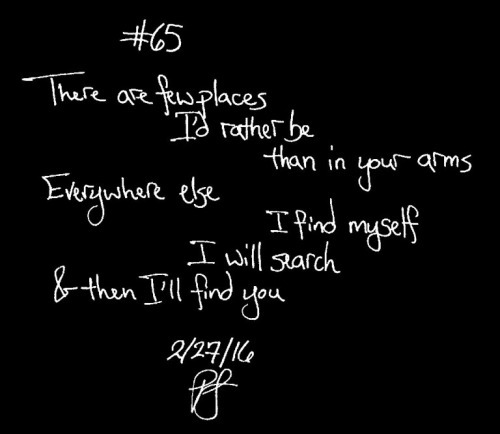 #65
There are few places
I'd rather be
than in your arms
Everywhere else
I find myself
I will search
& then I'll find you
2/27/16